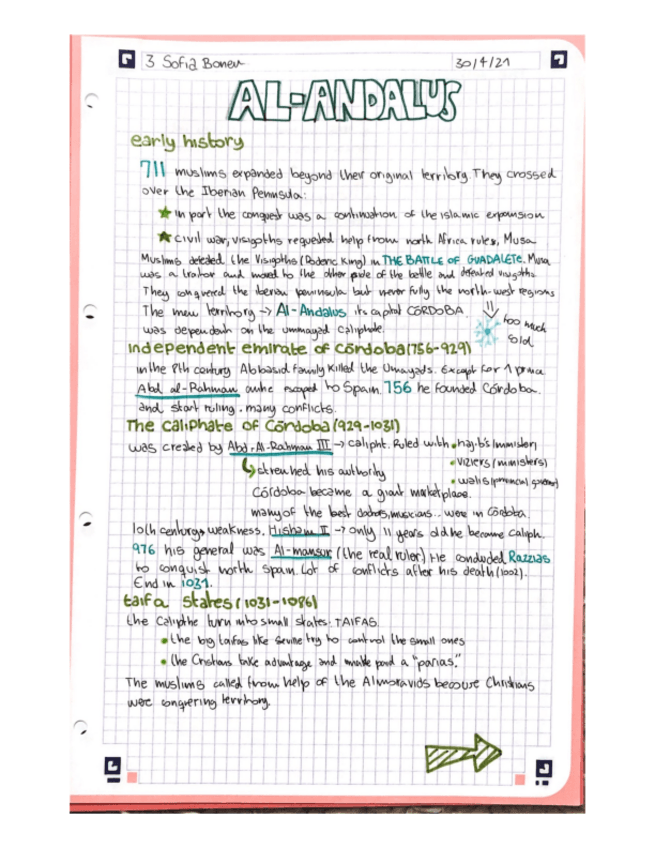 3 Sofia Boneu 30/4/21
AL-ANDALUS
early history
711 muslims expanded beyond their original territory. They crossed
over the Iberian Peninsula:
in part the conquest was a continuation of the islamic expansion
civil war, visigoths requested help from north Africa rules, Musa
Muslims defeated the Visigoths (Roderic King) in THE BATTLE OF GUADALETE. Musa
was a traitor and moved to the other side of the battle and defeated visigoths.
They conquered the iberian peninsula but never fully the north-west regions
The new territory → Al-Andalus its capital CÓRDOBA.
too much
cold
was dependent on the ummayad caliphate.
independent emirate of Córdoba (756-929)
in the 8th century Abbasid family killed the Umayads. Except for 1 prince
Abd al-Rahman who escaped to Spain. 756 he founded Córdoba.
and start ruling. many conflicts.
The caliphate of Córdoba (929-1031)
was created by Abd-Al-Rahman III → caliph. Ruled with hajibs
viziers (ministers)
walis (provincial governors)
his authority
Córdoba became a giant marketplace.
many of the best doctors, musicians... were in Córdoba.
10th century weakness. Hisham II → only 11 years old he become caliph.
976 his general was Al-mansur (the real ruler) He conducted Razzias
to conquist north Spain. Lot of conflicts after his death (1002).
End in 1031.
taifa states (1031-1086)
the Caliphte turn into small states. TAIFAS.
the big taifas like Seville try to control the small ones
the Cristians take advantage and make paid a "parias."
The muslims called from help of the Almoravids because Christians
were conquering territory.